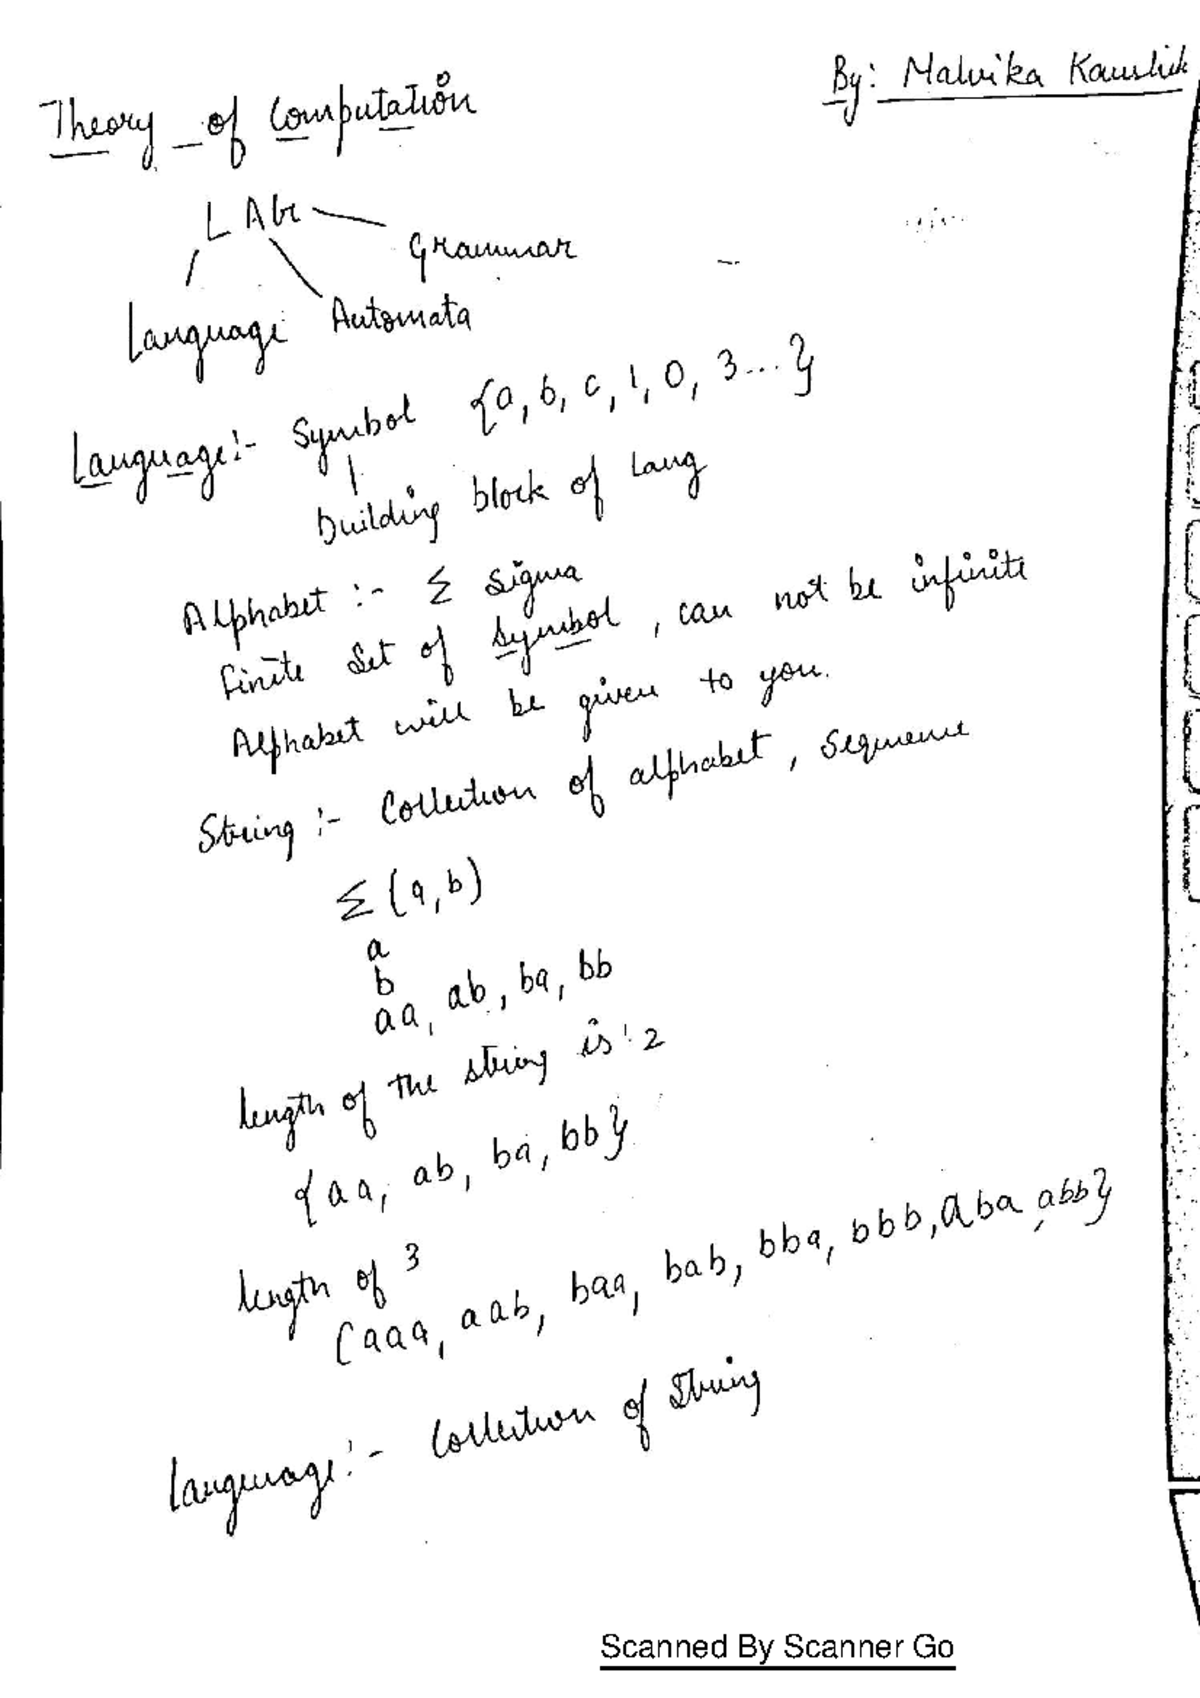 By: Malvika Kaushik
Theory of Computation
LAG
Grammar
Language Automata
Language:- Symbol {a, b, c, 1, 0, 3...}
building block of Lang
Alphabet :- Σ Sigma
finite set of symbol, can not be infinite
Alphabet will be given to you.
String :- Collection of alphabet, sequence
Σ (a, b)
a
b
aa, ab, ba, bb
length of the string is: 2
{aa, ab, ba, bb}
length of 3
(aaa, aab, baa, bab, bba, bbb, aba, abb}
Language:- Collection of string
Scanned By Scanner Go